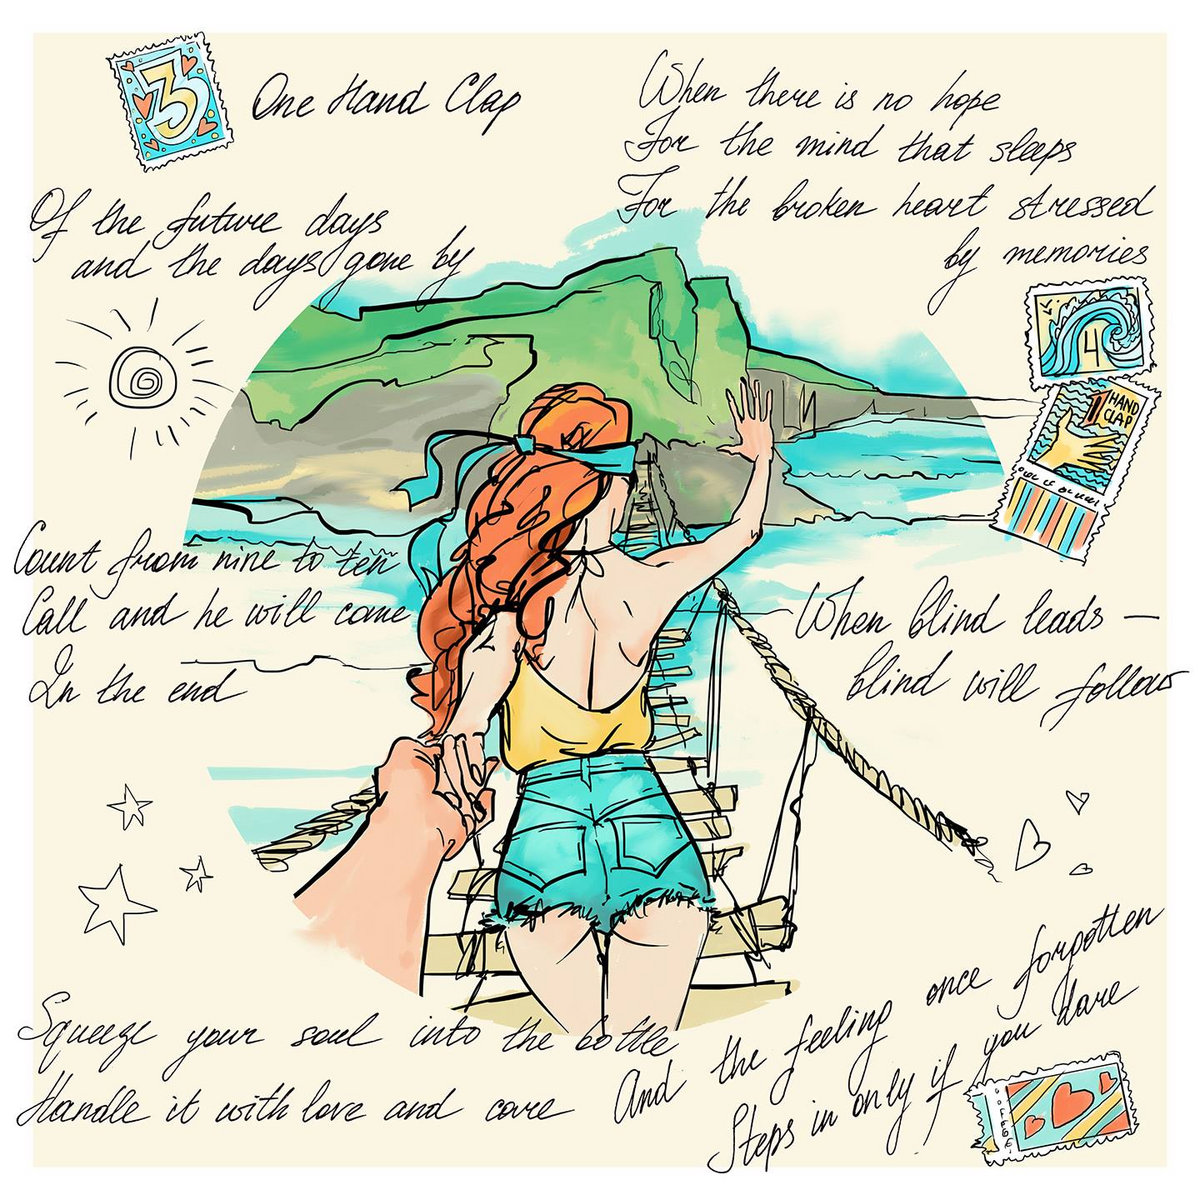 3
One Hand Clap
Of the future days
and the days gone by
When there is no hope
For the mind that sleeps
For the broken heart stressed
by memories
4
HAND
CLAP
Count from nine to ten
Call and he will come
In the end
When blind leads —
blind will follow
Squeeze your soul into the bottle
Handle it with love and care
And the feeling once forgotten
Steps in only if you dare